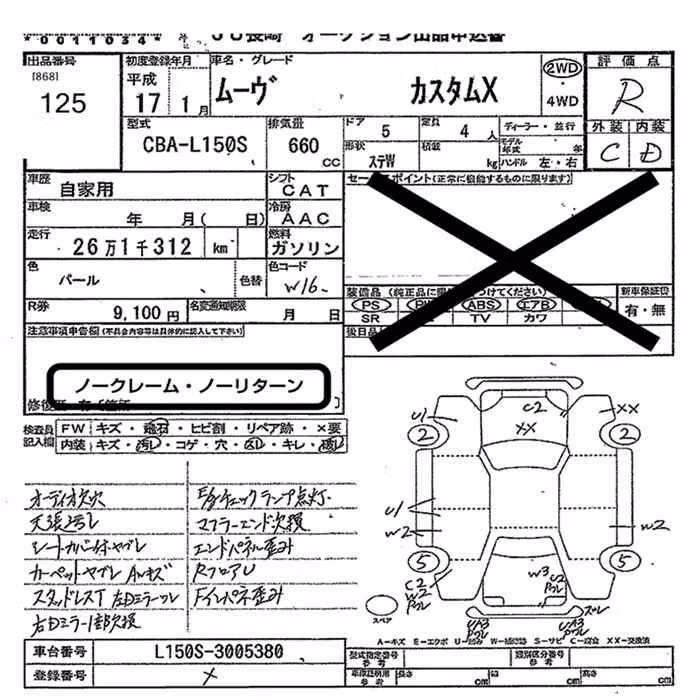 *0011034*
JU長崎 オークション出品申込書
出品番号 初度登録年月 車名・グレード 評価点
[868] 平成 2WD
125 17 1月 ムーヴ カスタムX ・4WD R
型式 排気量 ドア 5 定員 4人 ディーラー・並行 外装 内装
CBA-L150S 660 CC 形状 ステW 積載 kg モデル年式 年 ハンドル 左・右 C D
車歴 自家用 シフト CAT
車検 年 月( 日) 冷房 AAC
走行 26万1千312 km 燃料 ガソリン
色 パール 色替 色コード W16
装備品 (純正品に
つけてください) 新車保証書
PS ABS エアB 有・無
SR TV カワ
R券 9,100円 名変通知期限 月 日
後日品
注意事項申告欄 (不具合内容等は具体的に記入して下さい)
ノークレーム・ノーリターン
検査員記入欄 FW キズ・飛石・ヒビ割・リペア跡・×要
内装 キズ・汚レ・コゲ・穴・スレ・キレ・破レ
オーディオ欠 E/gチェックランプ点灯.
天張汚レ マフラーエンド欠損
シートカバー・体ヤブレ エンドパネル歪み
カーペットヤブレ AWキズ RフロアU
スタッドレスT 左Dミラーワレ Fインパネ歪み
右Dミラー1部欠損
U1 C2 XX
2 XX 2
U1
W2 W2
5 5
C2 W3 C2
W2
スペア UA3 UA3
A=キズ E=エクボ U=凹み W=補修跡 S=サビ C=腐食 XX=交換済
車台番号 L150S-3005380 型式指定番号 参考 類別区分番号 参考
登録番号 × 車庫証明用 参考 長さ cm 巾 cm 高さ cm